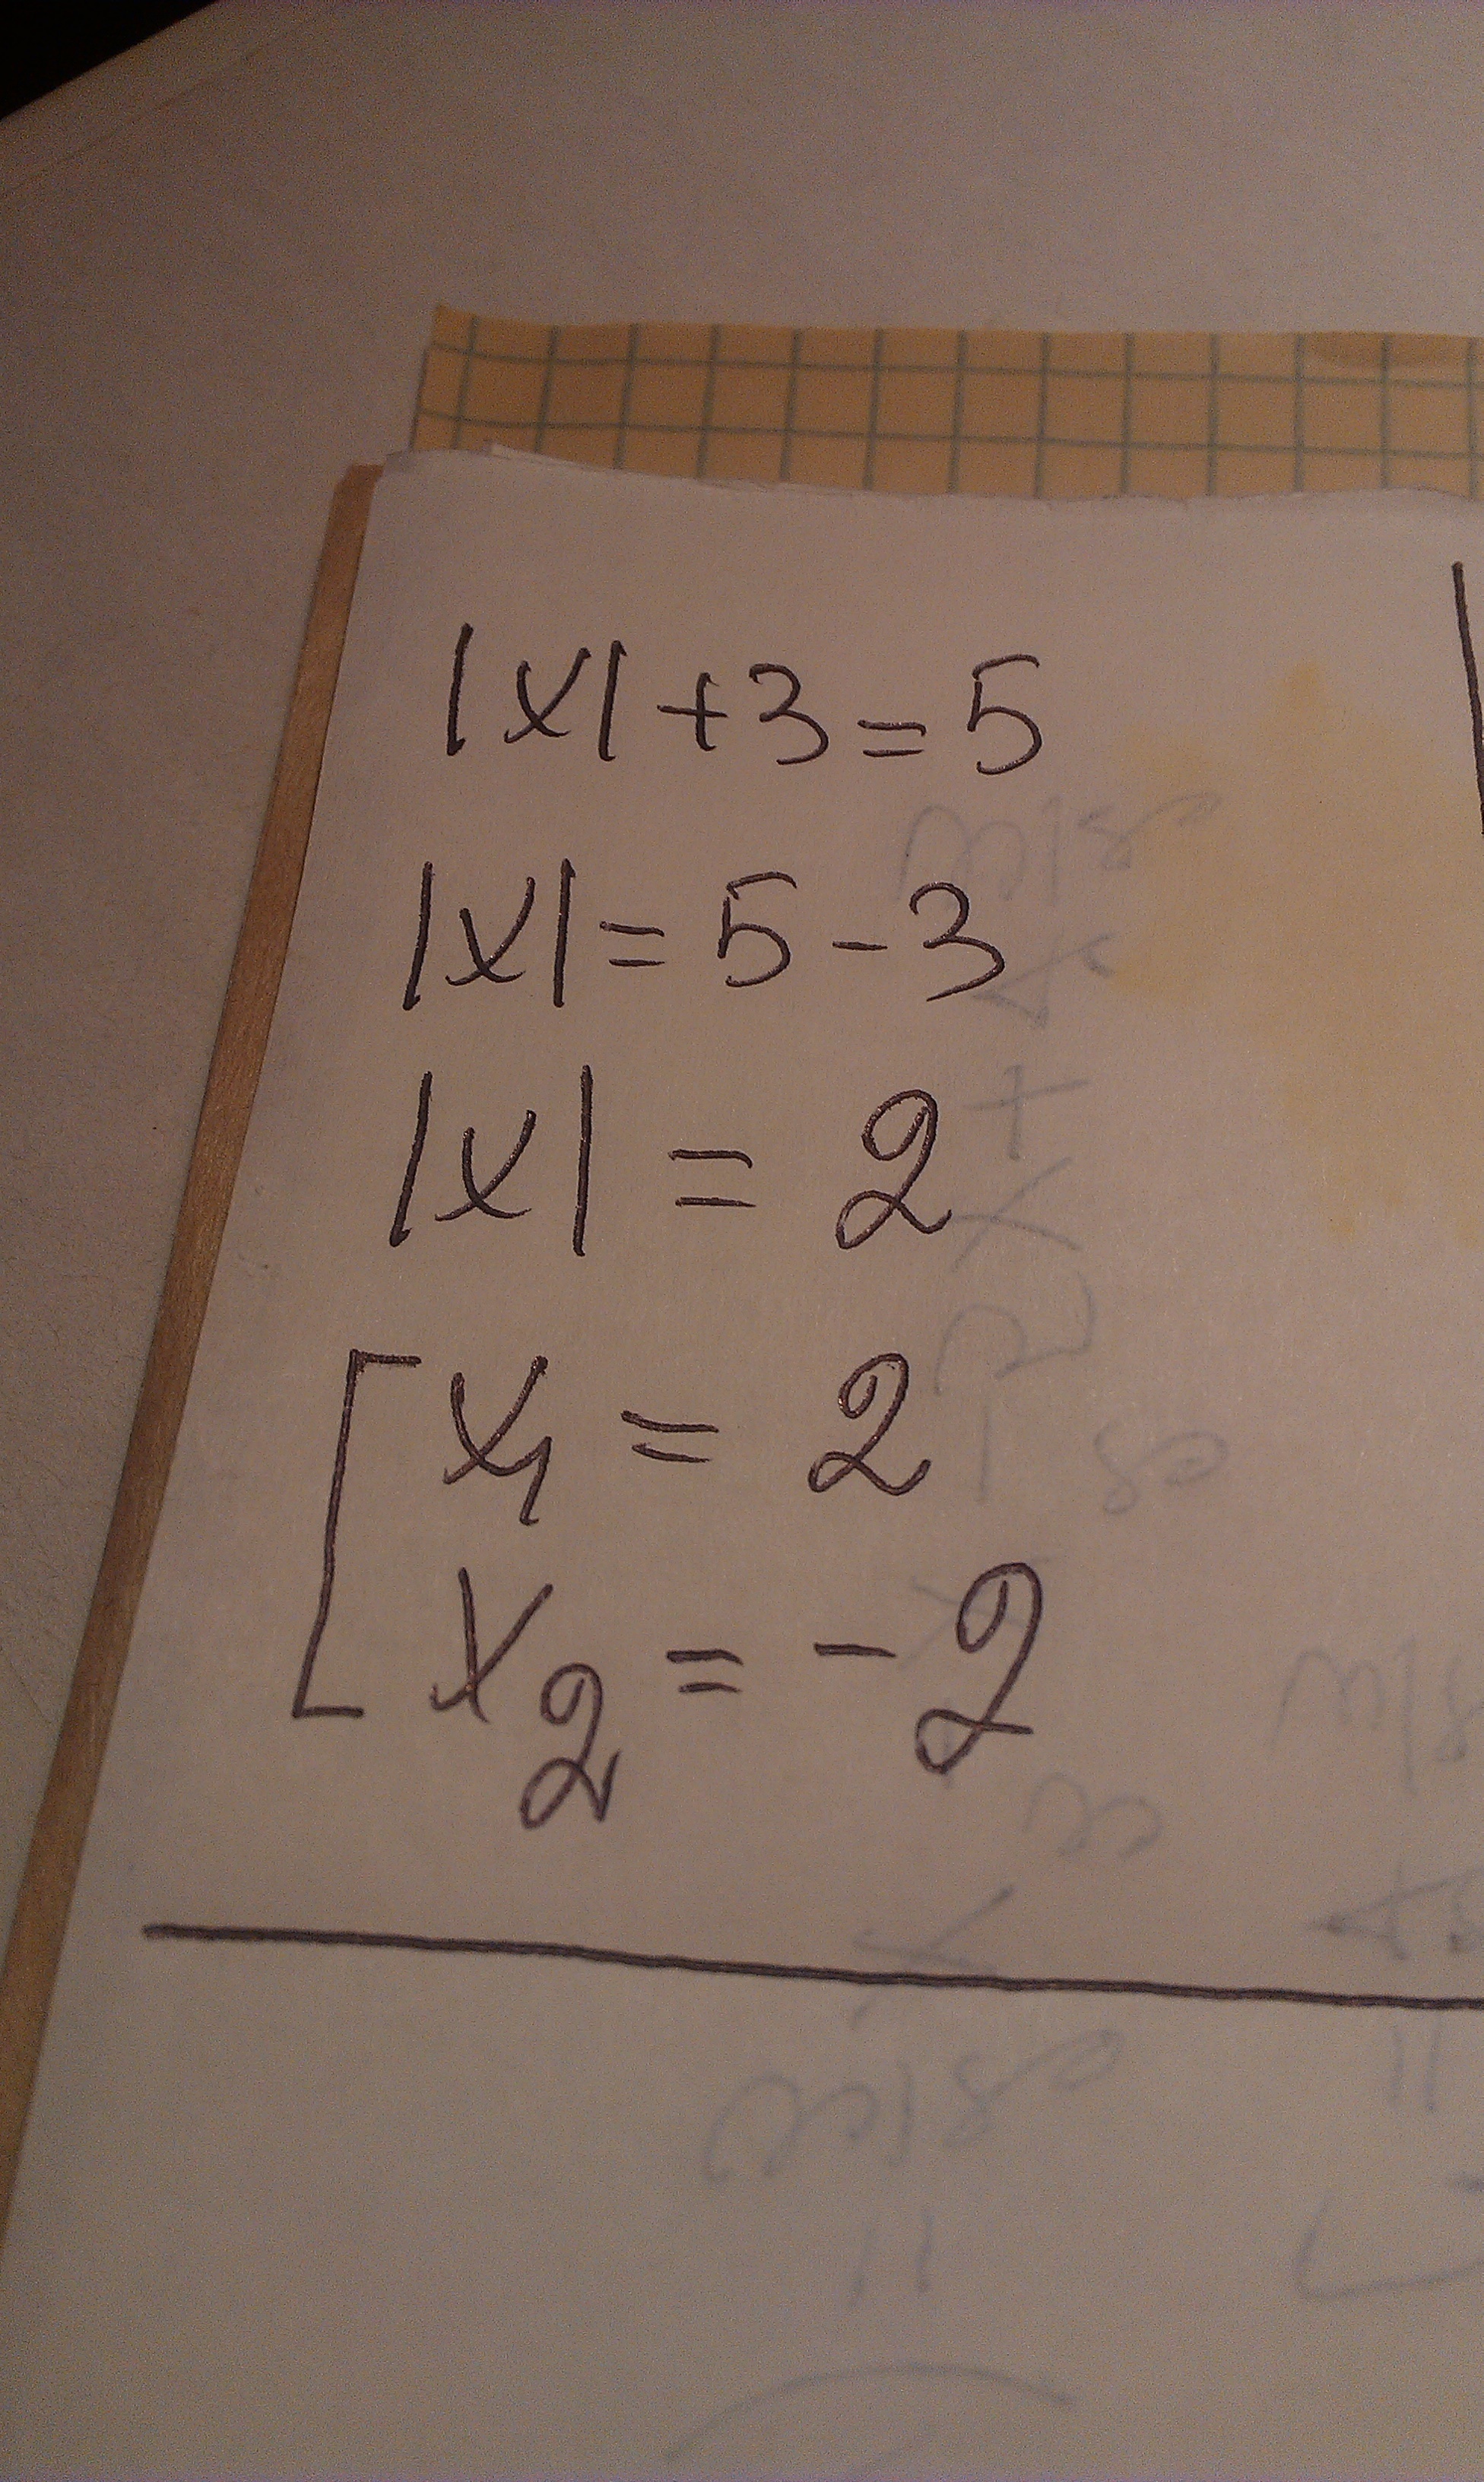 |x|+3=5
|x|=5-3
|x|=2
x₁=2
x₂=-2